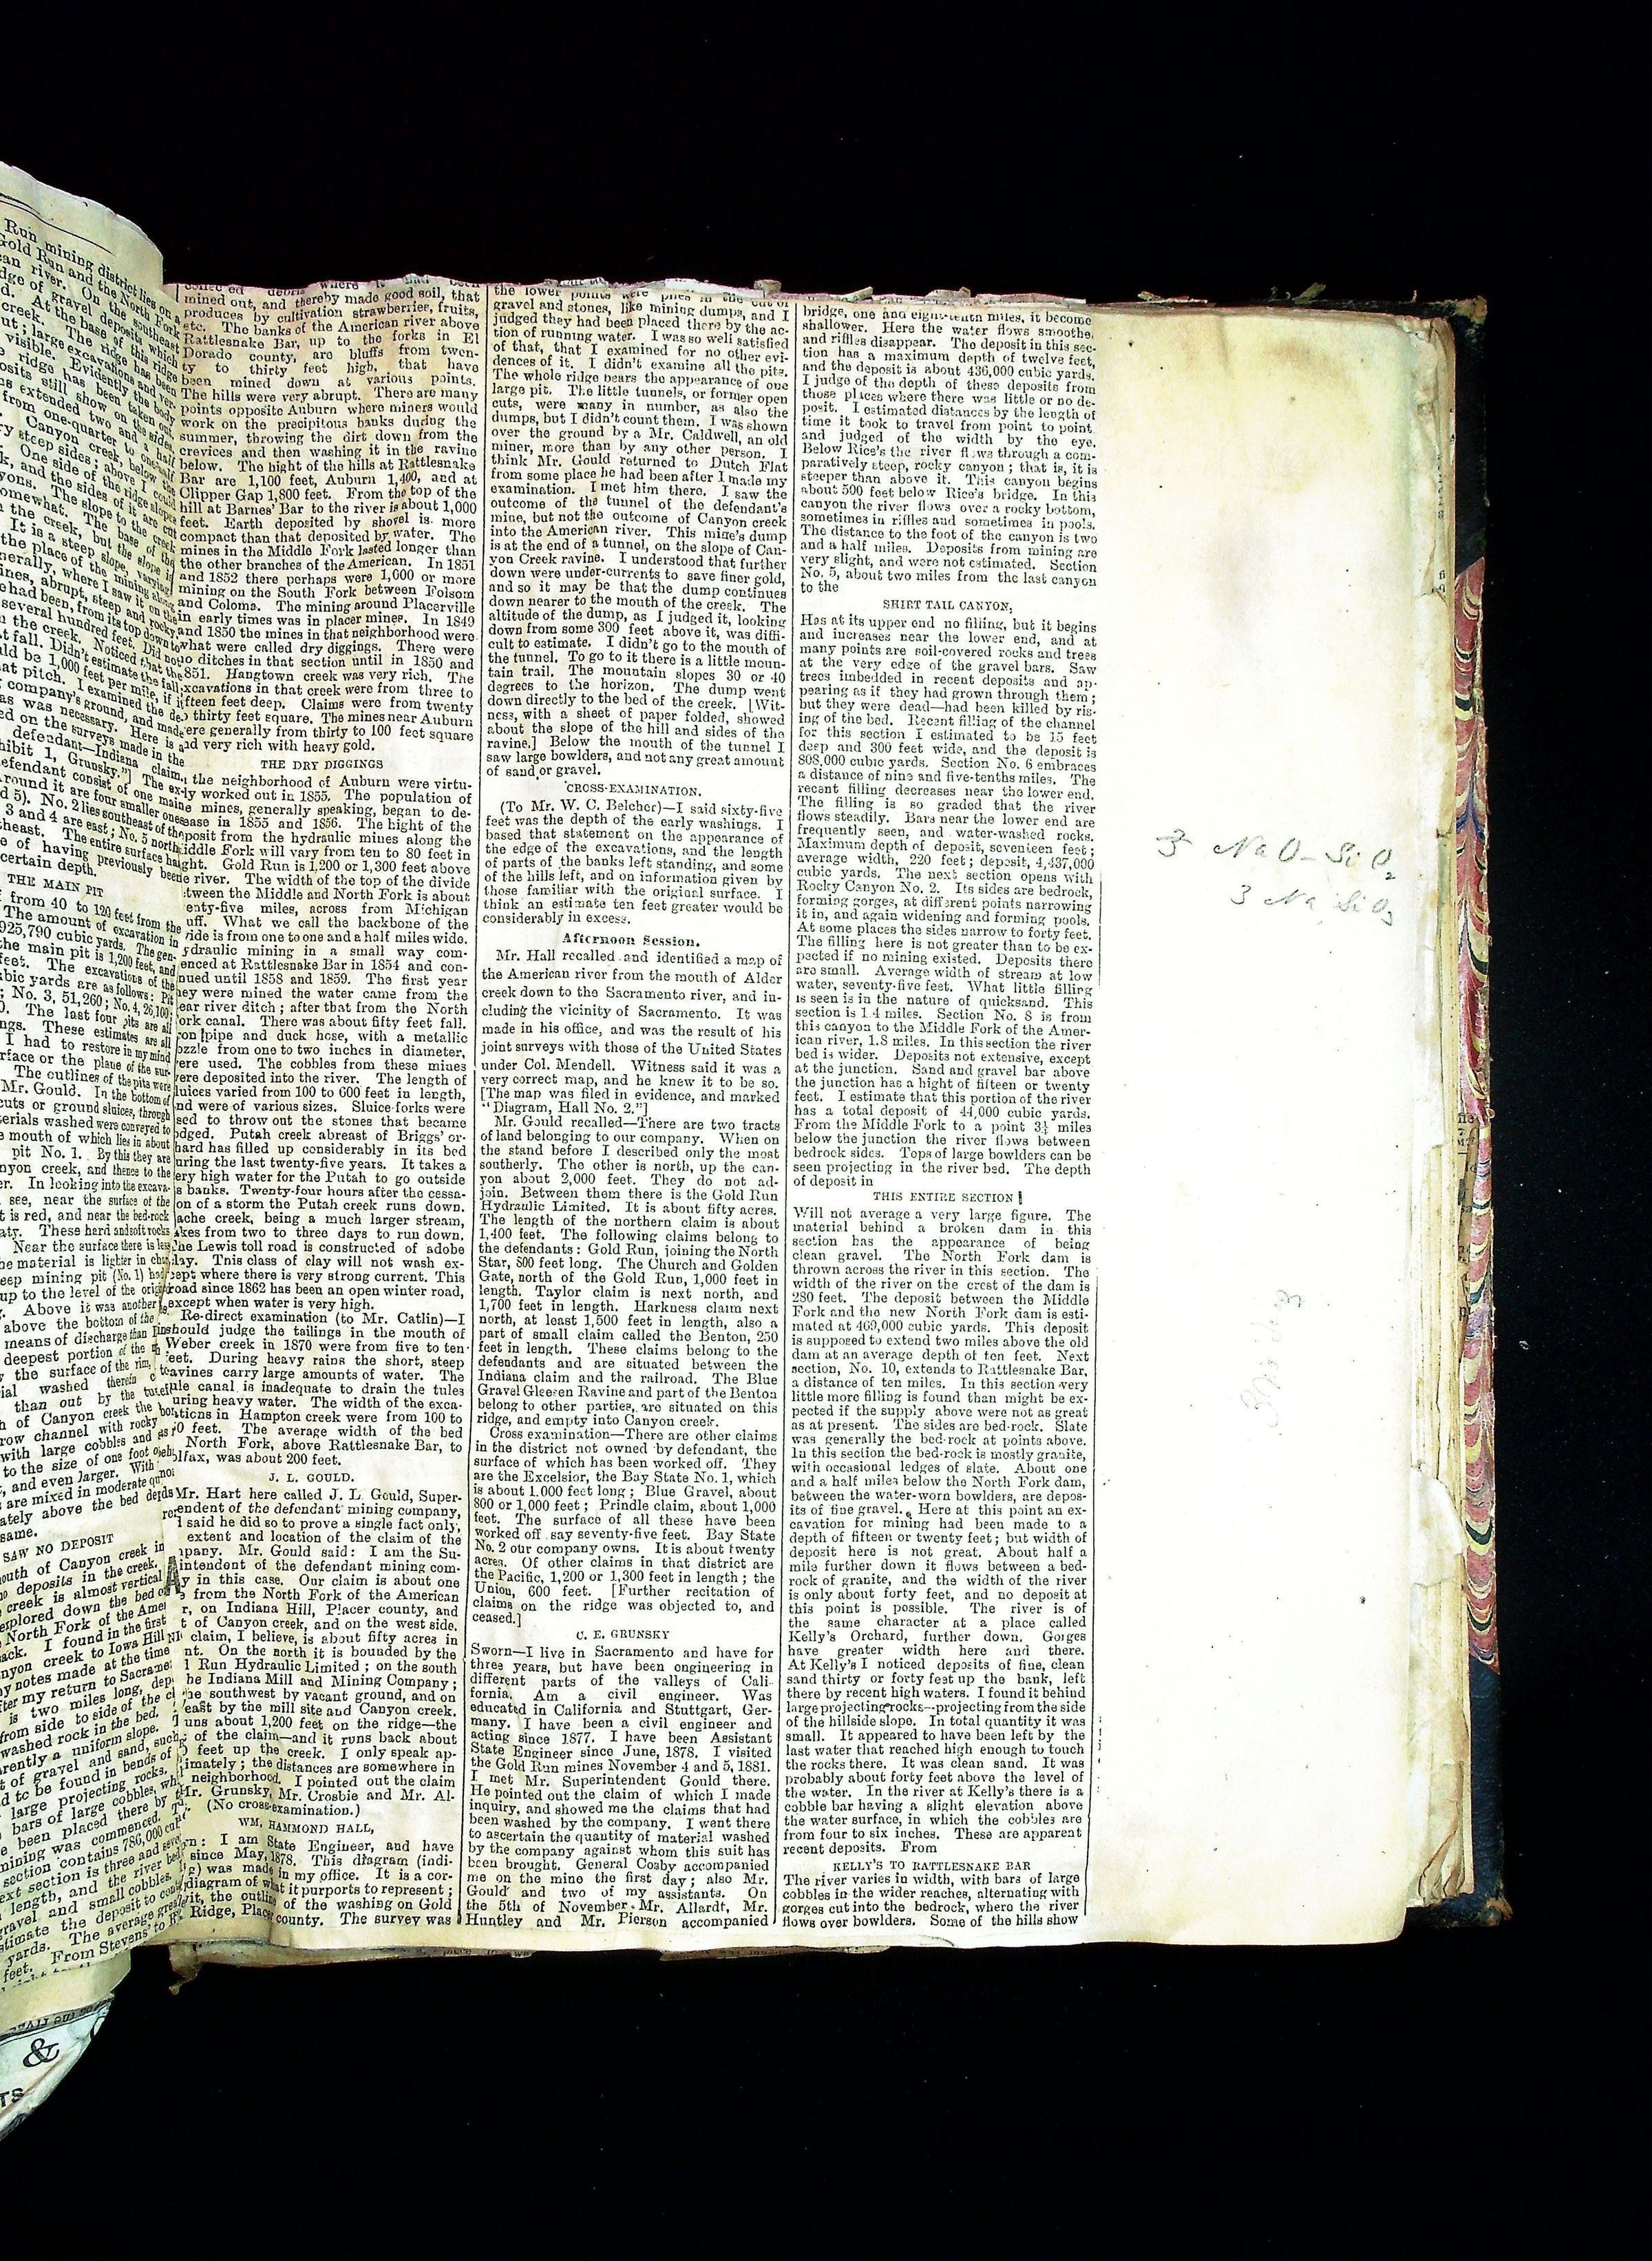 Run mining district lies on a
Gold Run and the North Fork
can river. On the southeast
dge of gravel deposits which
d. At the base of this ridge
creek. The ridge has been
ut; large excavations and the
visible. Evidently the
ridge has been taken out,
osits still show on the sides
extended two and a half
from one-quarter to one-half
Canyon creek, below the
ry steep sides; above I
One side of the ridge could
k, and the sides of it slopes
yons. The slope to the creek
omewhat. The base of the
the creek, but the slope is
It is a steep slope, varying
the place of the mining along
nerally, where I saw it on the
ines, abrupt, steep and rocky
had been, from its top down to
several hundred feet. Did not
the creek. Noticed that the
fall. Didn't estimate the fall;
ld be 1,000 feet per mile, if it
at pitch. I examined the de-
company's ground, and made
as was necessary. Here is a
ed on the surveys made in the
defendant—Indiana claim.
hibit 1, Grunsky."] The ex-
efendant consist of one main
round it are four smaller ones
d 5). No. 2 lies southeast of the
3 and 4 are east; No. 5 north
heast. The entire surface ha
e of having previously been
certain depth.
THE MAIN PIT
from 40 to 120 feet from the
The amount of excavation in
925,790 cubic yards. The gen-
he main pit is 1,200 feet, and
feet. The excavations of the
bic yards are as follows: Pit
; No. 3, 51,260; No. 4, 26,100;
0. The last four pits are all
ngs. These estimates are all
I had to restore in my mind
rface or the plane of the sur-
The outlines of the pits were
Mr. Gould. In the bottom of
cuts or ground sluices, through
terials washed were conveyed to
e mouth of which lies in about
pit No. 1. By this they are
nyon creek, and thence to the
er. In looking into the excava-
see, near the surface of the
t is red, and near the bed-rock
aty. These hard and soft rocks
Near the surface there is less
he material is lighter in
eep mining pit (No. 1) had
up to the level of the orig
Above it was another
above the bottom of the
means of discharge than
deepest portion of the
the surface of the rim,
ial washed therein
than out by the
h of Canyon creek the
row channel with rocky
with large cobbles and
to the size of one foot
, and even larger. With
are mixed in moderate
ately above the bed
same.
SAW NO DEPOSIT
outh of Canyon creek in
no deposits in the creek.
creek is almost vertical
explored down the bed of
North Fork of the Amer
ack. I found in the first
nyon creek to Iowa Hill
y notes made at the time
fter my return to Sacramen
is two miles long, dep
rom side to side of the
washed rock in the bed.
rently a uniform slope.
t of gravel and sand, such
d to be found in bends of
large projecting rocks.
bars of large cobbles,
been placed there by
mining was commenced.
section contains 786,000
ext section is three and
length, and the river bed
ravel and small cobbles.
stimate the deposit to
yards. The average
feet. From Stevens' to
mined out, and thereby made good soil, that
produces by cultivation strawberries, fruits,
etc. The banks of the American river above
Rattlesnake Bar, up to the forks in El
Dorado county, are bluffs from twen-
ty to thirty feet high, that have
been mined down at various points.
The hills were very abrupt. There are many
points opposite Auburn where miners would
work on the precipitous banks during the
summer, throwing the dirt down from the
crevices and then washing it in the ravine
below. The hight of the hills at Rattlesnake
Bar are 1,100 feet, Auburn 1,400, and at
Clipper Gap 1,800 feet. From the top of the
hill at Barnes' Bar to the river is about 1,000
feet. Earth deposited by shovel is more
compact than that deposited by water. The
mines in the Middle Fork lasted longer than
the other branches of the American. In 1851
and 1852 there perhaps were 1,000 or more
mining on the South Fork between Folsom
and Coloma. The mining around Placerville
in early times was in placer mines. In 1849
and 1850 the mines in that neighborhood were
what were called dry diggings. There were
no ditches in that section until in 1850 and
1851. Hangtown creek was very rich. The
excavations in that creek were from three to
fifteen feet deep. Claims were from twenty
to thirty feet square. The mines near Auburn
were generally from thirty to 100 feet square
and very rich with heavy gold.
THE DRY DIGGINGS
the neighborhood of Auburn were virtu-
ly worked out in 1855. The population of
e mines, generally speaking, began to de-
ease in 1855 and 1856. The hight of the
posit from the hydraulic mines along the
iddle Fork will vary from ten to 80 feet in
ght. Gold Run is 1,200 or 1,300 feet above
e river. The width of the top of the divide
tween the Middle and North Fork is about
enty-five miles, across from Michigan
uff. What we call the backbone of the
vide is from one to one and a half miles wide.
ydraulic mining in a small way com-
enced at Rattlesnake Bar in 1854 and con-
nued until 1858 and 1859. The first year
hey were mined the water came from the
ear river ditch; after that from the North
ork canal. There was about fifty feet fall.
on pipe and duck hose, with a metallic
ozzle from one to two inches in diameter,
ere used. The cobbles from these mines
ere deposited into the river. The length of
luices varied from 100 to 600 feet in length,
nd were of various sizes. Sluice forks were
sed to throw out the stones that became
odged. Putah creek abreast of Briggs' or-
hard has filled up considerably in its bed
uring the last twenty-five years. It takes a
ery high water for the Putah to go outside
s banks. Twenty-four hours after the cessa-
on of a storm the Putah creek runs down.
ache creek, being a much larger stream,
akes from two to three days to run down.
he Lewis toll road is constructed of adobe
lay. This class of clay will not wash ex-
cept where there is very strong current. This
road since 1862 has been an open winter road,
except when water is very high.
Re-direct examination (to Mr. Catlin)—I
should judge the tailings in the mouth of
Weber creek in 1870 were from five to ten
feet. During heavy rains the short, steep
ravines carry large amounts of water. The
tule canal is inadequate to drain the tules
uring heavy water. The width of the exca-
ations in Hampton creek were from 100 to
0 feet. The average width of the bed
North Fork, above Rattlesnake Bar, to
olfax, was about 200 feet.
J. L. GOULD.
Mr. Hart here called J. L. Gould, Super-
endent of the defendant mining company,
i said he did so to prove a single fact only,
extent and location of the claim of the
mpany. Mr. Gould said: I am the Su-
intendent of the defendant mining com-
y in this case. Our claim is about one
from the North Fork of the American
r, on Indiana Hill, Placer county, and
t of Canyon creek, and on the west side.
claim, I believe, is about fifty acres in
nt. On the north it is bounded by the
l Run Hydraulic Limited; on the south
he Indiana Mill and Mining Company;
he southwest by vacant ground, and on
east by the mill site and Canyon creek.
uns about 1,200 feet on the ridge—the
of the claim—and it runs back about
0 feet up the creek. I only speak ap-
imately; the distances are somewhere in
neighborhood. I pointed out the claim
Mr. Grunsky, Mr. Crosbie and Mr. Al-
(No cross-examination.)
WM. HAMMOND HALL,
rn: I am State Engineer, and have
since May, 1878. This diagram (indi-
g) was made in my office. It is a cor-
diagram of what it purports to represent;
it, the outline of the washing on Gold
Ridge, Placer county. The survey was
gravel and stones, like mining dumps, and I
judged they had been placed there by the ac-
tion of running water. I was so well satisfied
of that, that I examined for no other evi-
dences of it. I didn't examine all the pits.
The whole ridge bears the appearance of one
large pit. The little tunnels, or former open
cuts, were many in number, as also the
dumps, but I didn't count them. I was shown
over the ground by a Mr. Caldwell, an old
miner, more than by any other person. I
think Mr. Gould returned to Dutch Flat
from some place he had been after I made my
examination. I met him there. I saw the
outcome of the tunnel of the defendant's
mine, but not the outcome of Canyon creek
into the American river. This mine's dump
is at the end of a tunnel, on the slope of Can-
yon Creek ravine. I understood that further
down were under-currents to save finer gold,
and so it may be that the dump continues
down nearer to the mouth of the creek. The
altitude of the dump, as I judged it, looking
down from some 300 feet above it, was diffi-
cult to estimate. I didn't go to the mouth of
the tunnel. To go to it there is a little moun-
tain trail. The mountain slopes 30 or 40
degrees to the horizon. The dump went
down directly to the bed of the creek. [Wit-
ness, with a sheet of paper folded, showed
about the slope of the hill and sides of the
ravine.] Below the mouth of the tunnel I
saw large bowlders, and not any great amount
of sand or gravel.
CROSS-EXAMINATION.
(To Mr. W. C. Belcher)—I said sixty-five
feet was the depth of the early washings. I
based that statement on the appearance of
the edge of the excavations, and the length
of parts of the banks left standing, and some
of the hills left, and on information given by
those familiar with the original surface. I
think an estimate ten feet greater would be
considerably in excess.
Afternoon Session.
Mr. Hall recalled and identified a map of
the American river from the mouth of Alder
creek down to the Sacramento river, and in-
cluding the vicinity of Sacramento. It was
made in his office, and was the result of his
joint surveys with those of the United States
under Col. Mendell. Witness said it was a
very correct map, and he knew it to be so.
[The map was filed in evidence, and marked
"Diagram, Hall No. 2."]
Mr. Gould recalled—There are two tracts
of land belonging to our company. When on
the stand before I described only the most
southerly. The other is north, up the can-
yon about 2,000 feet. They do not ad-
join. Between them there is the Gold Run
Hydraulic Limited. It is about fifty acres.
The length of the northern claim is about
1,400 feet. The following claims belong to
the defendants: Gold Run, joining the North
Star, 800 feet long. The Church and Golden
Gate, north of the Gold Run, 1,000 feet in
length. Taylor claim is next north, and
1,700 feet in length. Harkness claim next
north, at least 1,500 feet in length, also a
part of small claim called the Benton, 250
feet in length. These claims belong to the
defendants and are situated between the
Indiana claim and the railroad. The Blue
Gravel Gleesen Ravine and part of the Benton
belong to other parties, are situated on this
ridge, and empty into Canyon creek.
Cross examination—There are other claims
in the district not owned by defendant, the
surface of which has been worked off. They
are the Excelsior, the Bay State No. 1, which
is about 1.000 feet long; Blue Gravel, about
800 or 1,000 feet; Prindle claim, about 1,000
feet. The surface of all these have been
worked off say seventy-five feet. Bay State
No. 2 our company owns. It is about twenty
acres. Of other claims in that district are
the Pacific, 1,200 or 1,300 feet in length; the
Union, 600 feet. [Further recitation of
claims on the ridge was objected to, and
ceased.]
C. E. GRUNSKY
Sworn—I live in Sacramento and have for
three years, but have been engineering in
different parts of the valleys of Cali-
fornia. Am a civil engineer. Was
educated in California and Stuttgart, Ger-
many. I have been a civil engineer and
acting since 1877. I have been Assistant
State Engineer since June, 1878. I visited
the Gold Run mines November 4 and 5, 1881.
I met Mr. Superintendent Gould there.
He pointed out the claim of which I made
inquiry, and showed me the claims that had
been washed by the company. I went there
to ascertain the quantity of material washed
by the company against whom this suit has
been brought. General Cosby accompanied
me on the mine the first day; also Mr.
Gould and two of my assistants. On
the 5th of November Mr. Allardt, Mr.
Huntley and Mr. Pierson accompanied
bridge, one and eight-tenth miles, it become
shallower. Here the water flows smoothe,
and riffles disappear. The deposit in this sec-
tion has a maximum depth of twelve feet,
and the deposit is about 436,000 cubic yards.
I judge of the depth of these deposits from
those places where there was little or no de-
posit. I estimated distances by the length of
time it took to travel from point to point
and judged of the width by the eye.
Below Rice's the river flows through a com-
paratively steep, rocky canyon; that is, it is
steeper than above it. This canyon begins
about 500 feet below Rice's bridge. In this
canyon the river flows over a rocky bottom,
sometimes in riffles and sometimes in pools.
The distance to the foot of the canyon is two
and a half miles. Deposits from mining are
very slight, and were not estimated. Section
No. 5, about two miles from the last canyon
to the
SHIRT TAIL CANYON,
Has at its upper end no filling, but it begins
and increases near the lower end, and at
many points are soil-covered rocks and trees
at the very edge of the gravel bars. Saw
trees imbedded in recent deposits and ap-
pearing as if they had grown through them;
but they were dead—had been killed by ris-
ing of the bed. Recent filling of the channel
for this section I estimated to be 15 feet
deep and 300 feet wide, and the deposit is
808,000 cubic yards. Section No. 6 embraces
a distance of nine and five-tenths miles. The
recent filling decreases near the lower end.
The filling is so graded that the river
flows steadily. Bars near the lower end are
frequently seen, and water-washed rocks.
Maximum depth of deposit, seventeen feet;
average width, 220 feet; deposit, 4,437,000
cubic yards. The next section opens with
Rocky Canyon No. 2. Its sides are bedrock,
forming gorges, at different points narrowing
it in, and again widening and forming pools.
At some places the sides narrow to forty feet.
The filling here is not greater than to be ex-
pected if no mining existed. Deposits there
are small. Average width of stream at low
water, seventy-five feet. What little filling
is seen is in the nature of quicksand. This
section is 1.4 miles. Section No. 8 is from
this canyon to the Middle Fork of the Amer-
ican river, 1.8 miles. In this section the river
bed is wider. Deposits not extensive, except
at the junction. Sand and gravel bar above
the junction has a hight of fifteen or twenty
feet. I estimate that this portion of the river
has a total deposit of 44,000 cubic yards.
From the Middle Fork to a point 3½ miles
below the junction the river flows between
bedrock sides. Tops of large bowlders can be
seen projecting in the river bed. The depth
of deposit in
THIS ENTIRE SECTION
Will not average a very large figure. The
material behind a broken dam in this
section has the appearance of being
clean gravel. The North Fork dam is
thrown across the river in this section. The
width of the river on the crest of the dam is
280 feet. The deposit between the Middle
Fork and the new North Fork dam is esti-
mated at 469,000 cubic yards. This deposit
is supposed to extend two miles above the old
dam at an average depth of ten feet. Next
section, No. 10, extends to Rattlesnake Bar,
a distance of ten miles. In this section very
little more filling is found than might be ex-
pected if the supply above were not as great
as at present. The sides are bed-rock. Slate
was generally the bed-rock at points above.
In this section the bed-rock is mostly granite,
with occasional ledges of slate. About one
and a half miles below the North Fork dam,
between the water-worn bowlders, are depos-
its of fine gravel. Here at this point an ex-
cavation for mining had been made to a
depth of fifteen or twenty feet; but width of
deposit here is not great. About half a
mile further down it flows between a bed-
rock of granite, and the width of the river
is only about forty feet, and no deposit at
this point is possible. The river is of
the same character at a place called
Kelly's Orchard, further down. Gorges
have greater width here and there.
At Kelly's I noticed deposits of fine, clean
sand thirty or forty feet up the bank, left
there by recent high waters. I found it behind
large projecting rocks—projecting from the side
of the hillside slope. In total quantity it was
small. It appeared to have been left by the
last water that reached high enough to touch
the rocks there. It was clean sand. It was
probably about forty feet above the level of
the water. In the river at Kelly's there is a
cobble bar having a slight elevation above
the water surface, in which the cobbles are
from four to six inches. These are apparent
recent deposits. From
KELLY'S TO RATTLESNAKE BAR
The river varies in width, with bars of large
cobbles in the wider reaches, alternating with
gorges cut into the bedrock, where the river
flows over bowlders. Some of the hills show
3 NaO - SiO2
3 Na SiO3
&